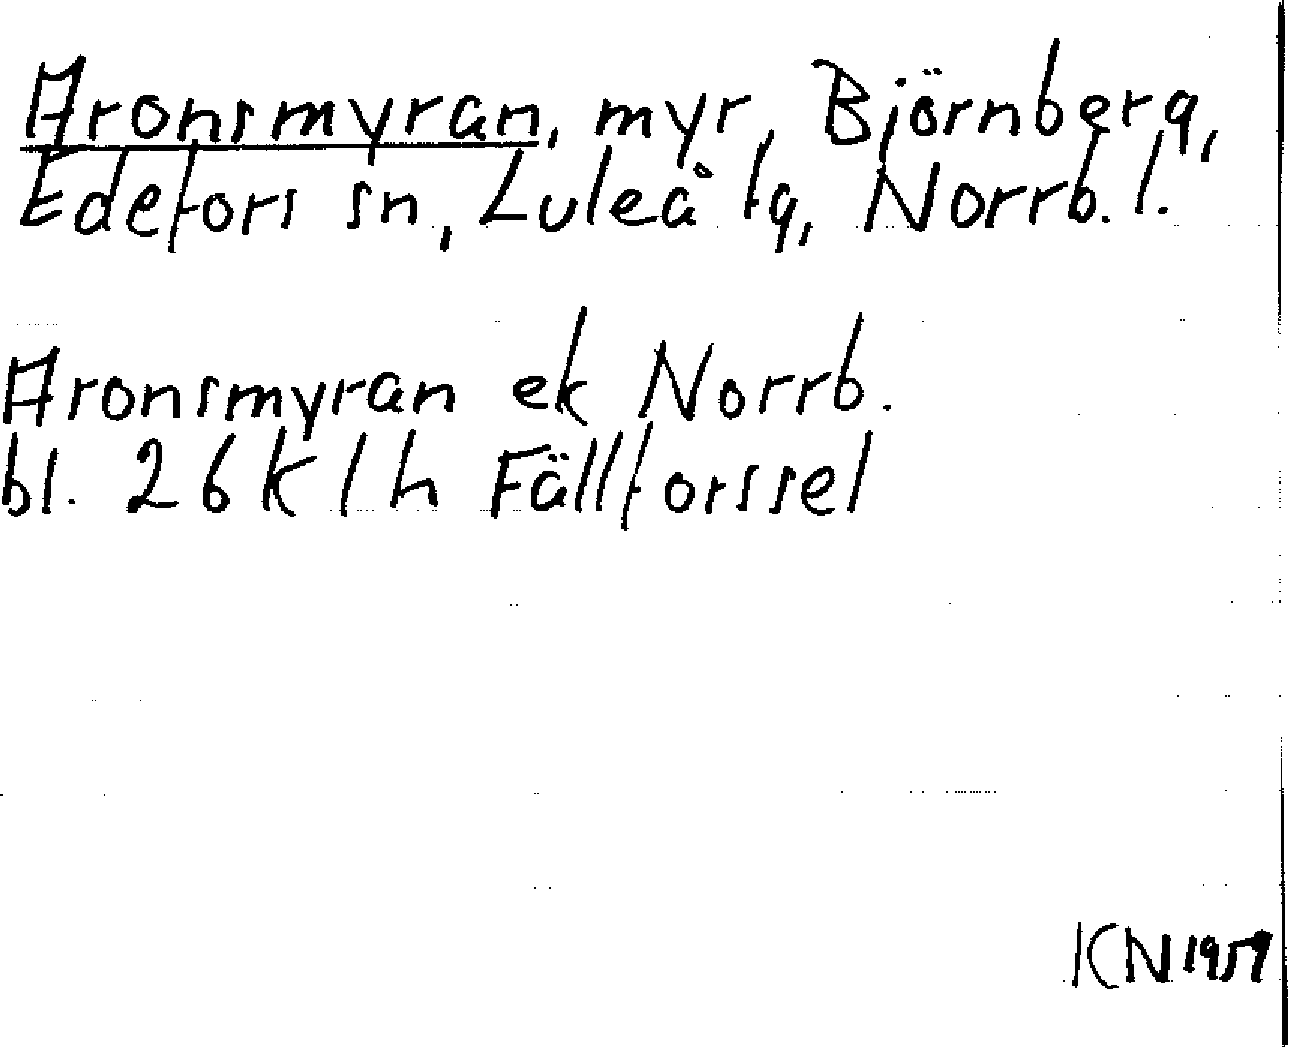 Aronsmyran, myr, Björnberg,
Edefors sn, Luleå tg, Norrb. l.
Aronsmyran ek Norrb.
bl. 26 K l h Fällforssel
KN 1959